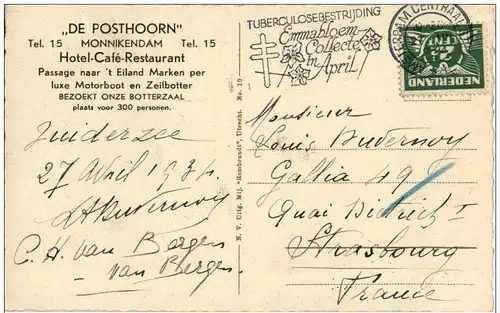 „DE POSTHOORN"
Tel. 15 MONNIKENDAM Tel. 15
Hotel-Café-Restaurant
Passage naar 't Eiland Marken per
luxe Motorboot en Zeilbotter
BEZOEKT ONZE BOTTERZAAL
plaats voor 300 personen.
Zuiderzee
27 Avril 1934.
C. H. van Bergen
van Bergen
N. V. Uitg. Mij. "Rembrandt", Utrecht. No. 10
TUBERCULOSEBESTRIJDING
Emmabloem-
Collecte
in April
AMSTERDAM CENTRAAL
NEDERLAND
Monsieur
Louis Duvernoy
Gallia 49
Quai Dietrich 1
Strasbourg
France